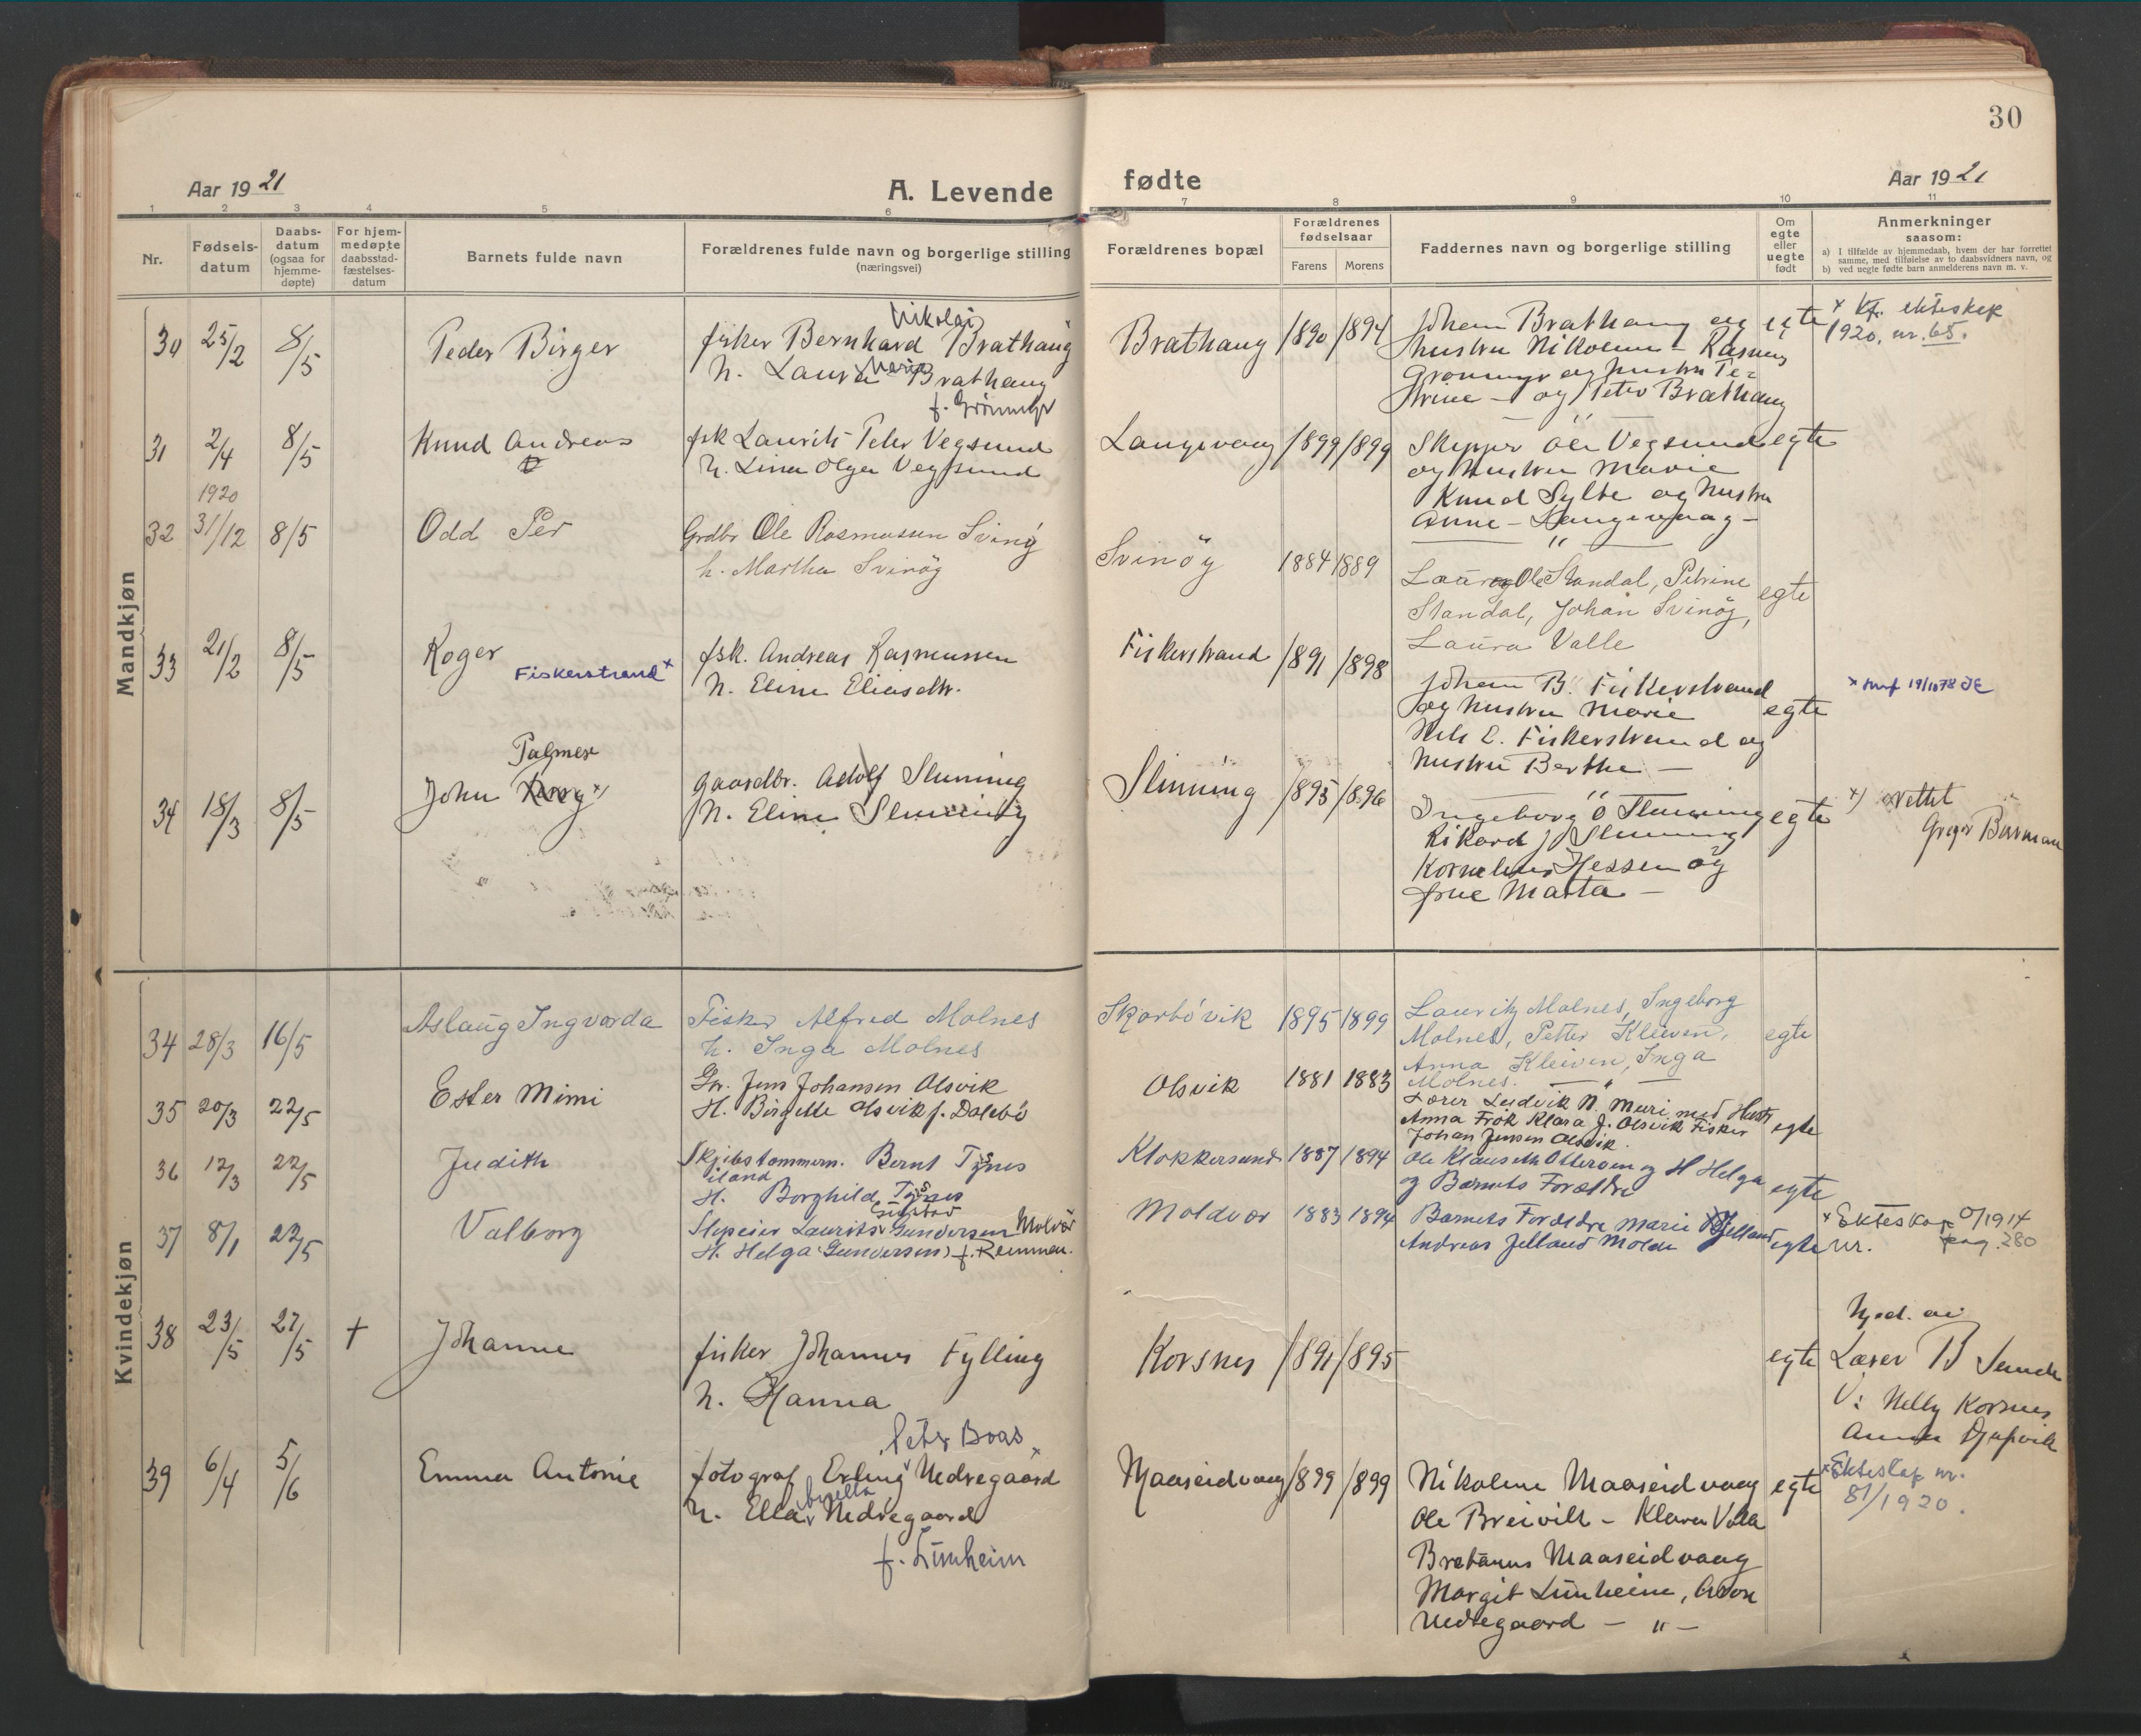 30
Aar 1921
A. Levende fødte
Aar 1921
1 2 3 4 5 6 7 8 9 10 11
Nr.
Fødsels-
datum
Daabs-
datum
(ogsaa for
hjemme-
døpte)
For hjem-
medøpte
daabsstad-
fæstelses-
datum
Barnets fulde navn
Forældrenes fulde navn og borgerlige stilling
(næringsvei)
Forældrenes bopæl
Forældrenes
fødselsaar
Farens Morens
Faddernes navn og borgerlige stilling
Om
egte
eller
uegte
født
Anmerkninger
saasom:
a) I tilfælde av hjemmedaab, hvem der har forrettet
samme, med tilføielse av to daabsvidners navn, og
b) ved uegte fødte barn anmelderens navn m. v.
Mandkjøn
30 25/2 8/5
Peder Birger
Nikolai
fisker Bernhard Brathaug
Maria
h. Laura Brathaug
f. Grönmyr
Brathaug 1890 1894
Johan Brathaug og
hustru Nikoline - Rasmus
Grönmyr og hustru Pe-
trine - og Peter Brathaug
egte
x Kf. ekteskap
1920, nr. 65.
31 2/4 8/5
Knud Andreas
fsk Laurits Peter Vegsund
h. Lina Olga Vegsund
Langevaag 1899 1899
Skipper Ole Vegsund
og hustru Marie
Knud Sylte og hustru
Anne - Langevaag -
egte
1920
32 31/12 8/5
Odd Per
Grdbr Ole Rasmussen Svinöy
h. Martha Svinöy
Svinöy 1884 1889
Laura og Ole Standal, Petrine
Standal, Johan Svinöy,
Laura Valle
egte
33 21/2 8/5
Roger
Fiskerstrand x
fsk. Andreas Rasmussen
h. Eline Eliasdtr.
Fiskerstrand 1891 1898
Johan B. Fiskerstrand
og hustru Marie
Nils E. Fiskerstrand og
hustru Berthe -
egte
34 18/3 8/5
Palmer
John x)
gaardbr. Adolf Slinning
h. Eline Slinning
Slinning 1893 1896
Ingeborg O Slinning
Rikard J Slinning
Kornelius Hessen og
frue Marta -
egte
x) rettet
Kvindekjøn
34 28/3 16/5
Aslaug Ingvarda
Fisker Alfred Molnes
h. Inga Molnes
Skarbövik 1895 1899
Lauritz Molnes, Ingeborg
Molnes, Petter Kleiven,
Anna Kleiven, Inga
Molnes.
egte
35 20/3 22/5
Ester Mimi
Gr. Jens Johansen Olsvik
H. Birgitte Olsvik f. Dalebö
Olsvik 1881 1883
Lærer Ludvik N. Muri med Hustr
Anna Frök Klara J. Olsvik Fisker
Johan Jensen Olsvik.
egte
36 12/3 22/5
Judith
Skibstømmerm. Bernt
H. Borghild
Klokkersund 1887 1894
Ole Klauseth Otterøen og H Helga
og Barnets Forældre
egte
37 8/1 22/5
Valborg
Gustav
Laurits Gundersen Molvær
H. Helga (Gundersen) f. Remmen.
Moldvær 1883 1894
Barnets Forældre Marie Jelland
Andreas Jelland Molde
egte
x Ekteskap 0/1914
nr. pag. 280
38 23/5 27/5 †
Johanne
fisker Johannes Fylling
h. Hanna
Korsnes 1891 1895
egte
hjd. av
Lærer B Sunde
V: Nelly Korsnes
39 6/4 5/6
Emma Antonie
Peter Boas x
fotograf Erling Nedregaard
h. Ella Nedregaard
f. Limheim
Maaseidvaag 1899 1899
Nikoline Maaseidvaag
Ole Breivik - Klara Valle
Maaseidvaag
Margit Limheim, Aron
Nedregaard - " -
egte
x Ekteskap nr.
81/1920.